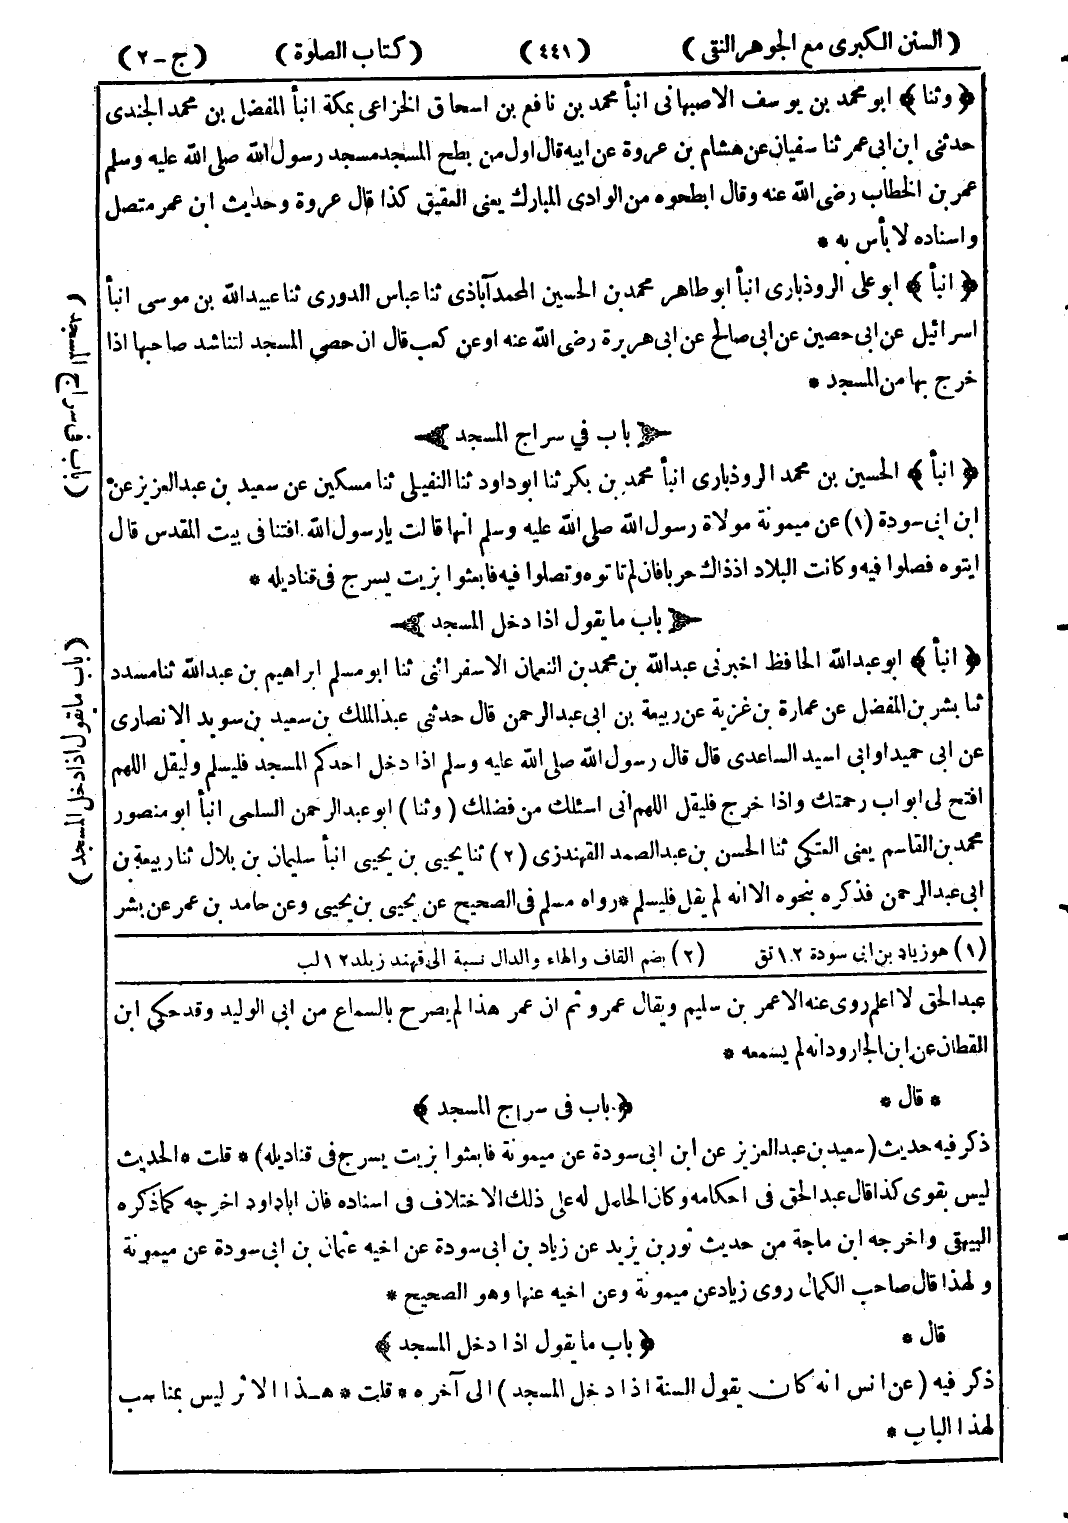 (السنن الكبرى مع الجوهر النقى) (٤٤١) (كتاب الصلوة) (ج-٢)
﴿وثنا﴾ ابو محمد بن يوسف الاصبهانى انبأ محمد بن نافع بن اسحاق الخزاعى بمكة انبأ المفضل بن محمد الجندى
حدثنى ابن ابى عمر ثنا سفيان عن هشام بن عروة عن ابيه قال اول من بطح المسجد مسجد رسول الله صلى الله عليه وسلم
عمر بن الخطاب رضى الله عنه وقال ابطحوه من الوادى المبارك يعنى العقيق كذا قال عروة وحديث ابن عمر متصل
واسناده لا بأس به *
﴿انبأ﴾ ابو على الروذبارى انبأ ابو طاهر محمد بن الحسين المحمدآباذى ثنا عباس الدورى ثنا عبيد الله بن موسى انبأ
اسرائيل عن ابى حصين عن ابى صالح عن ابى هريرة رضى الله عنه او عن كعب قال ان حصى المسجد لتناشد صاحبها اذا
خرج بها من المسجد *
باب في سراج المسجد
﴿انبأ﴾ الحسين بن محمد الروذبارى انبأ محمد بن بكر ثنا ابو داود ثنا النفيلى ثنا مسكين عن سعيد بن عبد العزيز عن
ابن ابى سودة (١) عن ميمونة مولاة رسول الله صلى الله عليه وسلم انها قالت يا رسول الله افتنا فى بيت المقدس قال
ايتوه فصلوا فيه وكانت البلاد اذ ذاك حربا فان لم تاتوه وتصلوا فيه فابعثوا بزيت يسرج فى قناديله *
باب ما يقول اذا دخل المسجد
﴿انبأ﴾ ابو عبد الله الحافظ اخبرنى عبد الله بن محمد بن النعمان الاسفرائنى ثنا ابو مسلم ابراهيم بن عبد الله ثنا مسدد
ثنا بشر بن المفضل عن عمارة بن غزية عن ربيعة بن ابى عبد الرحمن قال حدثنى عبد الملك بن سعيد بن سويد الانصارى
عن ابى حميد او ابى اسيد الساعدى قال قال رسول الله صلى الله عليه وسلم اذا دخل احدكم المسجد فليسلم وليقل اللهم
افتح لى ابواب رحمتك واذا خرج فليقل اللهم انى اسئلك من فضلك (وثنا) ابو عبد الرحمن السلمى انبأ ابو منصور
محمد بن القاسم يعنى العتكى ثنا الحسن بن عبد الصمد القهندزى (٢) ثنا يحيى بن يحيى انبأ سليمان بن بلال ثنا ربيعة بن
ابى عبد الرحمن فذكره بنحوه الا انه لم يقل فليسلم * رواه مسلم فى الصحيح عن يحيى بن يحيى وعن حامد بن عمر عن بشر
(١) هو زياد بن ابى سودة ١٠٢ تق (٢) بضم القاف والهاء والدال نسبة الى قهندز بلد ١٢ لب
عبد الحق لا اعلم روى عنه الا عمر بن سليم ويقال عمرو ثم ان عمر هذا لم يصرح بالسماع من ابى الوليد وقد حكى ابن
القطان عن ابن الجارود انه لم يسمعه *
* قال *
﴿باب فى سراج المسجد﴾
ذكر فيه حديث (سعيد بن عبد العزيز عن ابن ابى سودة عن ميمونة فابعثوا بزيت يسرج فى قناديله) * قلت * الحديث
ليس بقوى كذا قال عبد الحق فى احكامه وكان الحامل له على ذلك الاختلاف فى اسناده فان ابا داود اخرجه كما ذكره
البيهقى واخرجه ابن ماجة من حديث ثور بن يزيد عن زياد بن ابى سودة عن اخيه عثمان بن ابى سودة عن ميمونة
ولهذا قال صاحب الكمال روى زياد عن ميمونة وعن اخيه عنها وهو الصحيح *
قال *
﴿باب ما يقول اذا دخل المسجد﴾
ذكر فيه (عن انس انه كان يقول السنة اذا دخل المسجد) الى آخره * قلت * هذا الاثر ليس بمناسب
لهذا الباب *
(باب فى سراج المسجد)
(باب ما يقول اذا دخل المسجد)